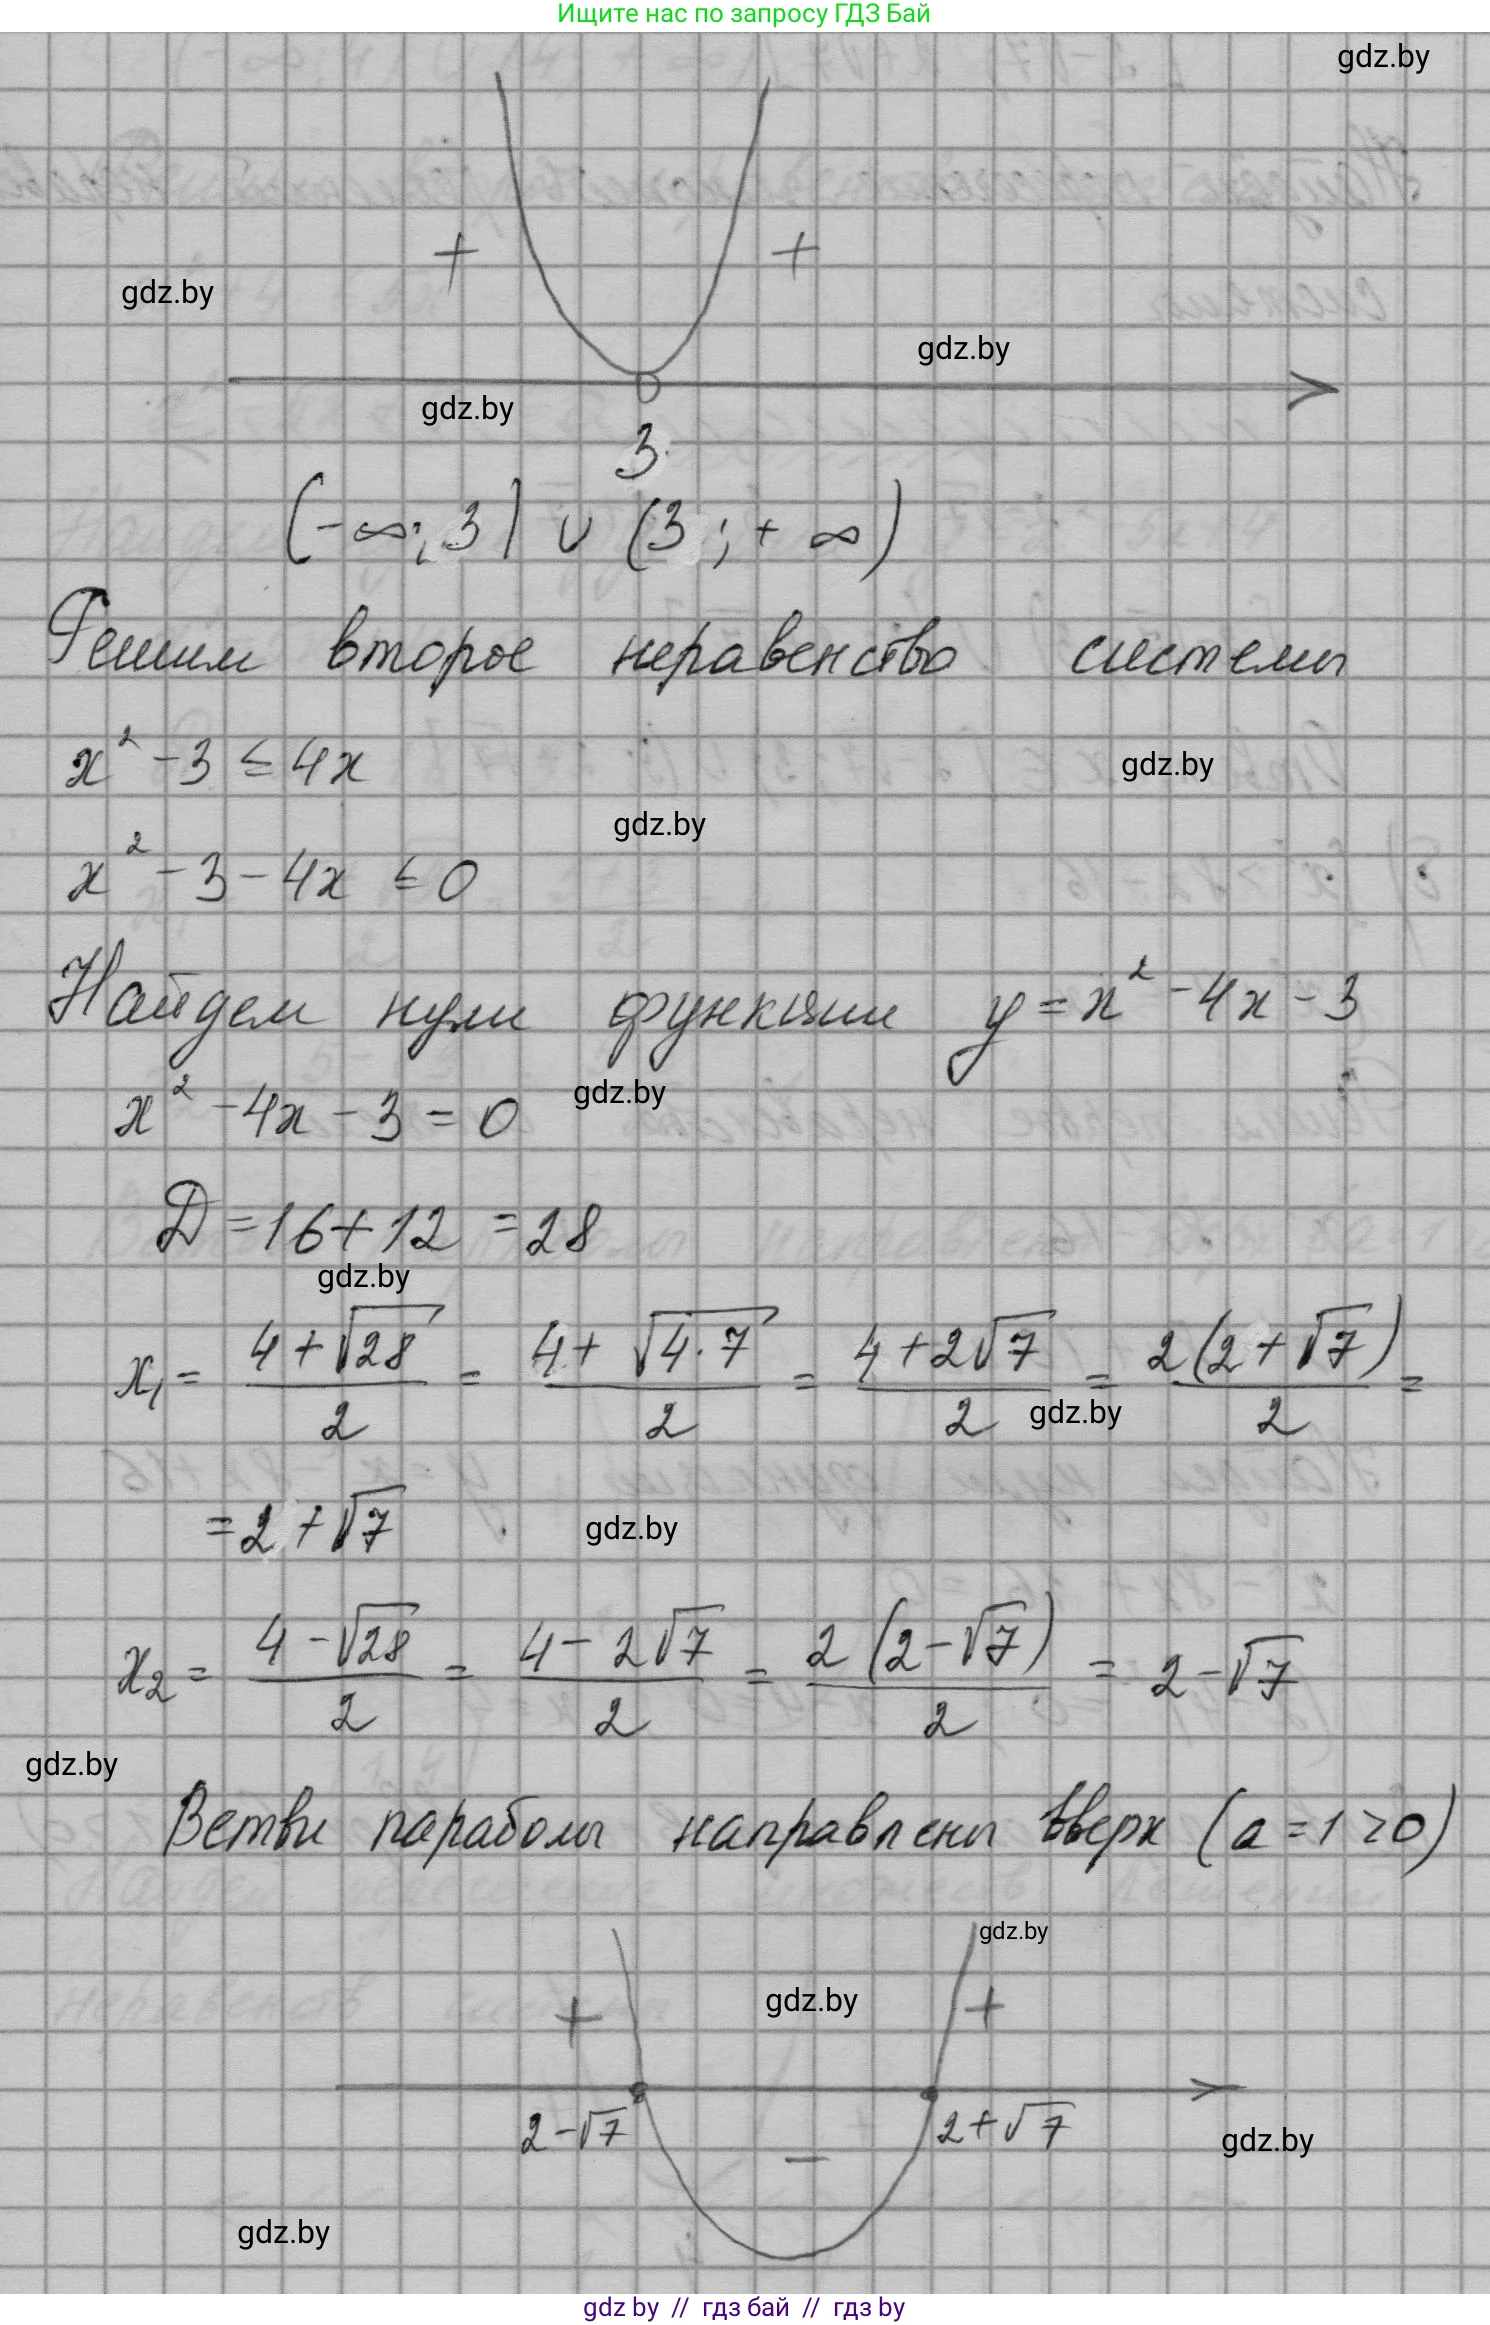 Ищите нас по запросу ГДЗ Бай
gdz.by
+ +
gdz.by
gdz.by
gdz.by
3
(-∞; 3) ∪ (3; +∞)
Решим второе неравенство системы
x² - 3 ≤ 4x
gdz.by
gdz.by
x² - 3 - 4x ≤ 0
Найдем нули функции y = x² - 4x - 3
gdz.by
x² - 4x - 3 = 0
D = 16 + 12 = 28
gdz.by
x₁ = (4 + √28)/2 = (4 + √(4·7))/2 = (4 + 2√7)/2 = 2(2 + √7)/2 =
gdz.by
= 2 + √7
gdz.by
x₂ = (4 - √28)/2 = (4 - 2√7)/2 = 2(2 - √7)/2 = 2 - √7
gdz.by
Ветви параболы направлены вверх (a = 1 > 0)
gdz.by
+ gdz.by +
2 - √7 2 + √7
gdz.by
-
gdz.by
gdz by // гдз бай // гдз by